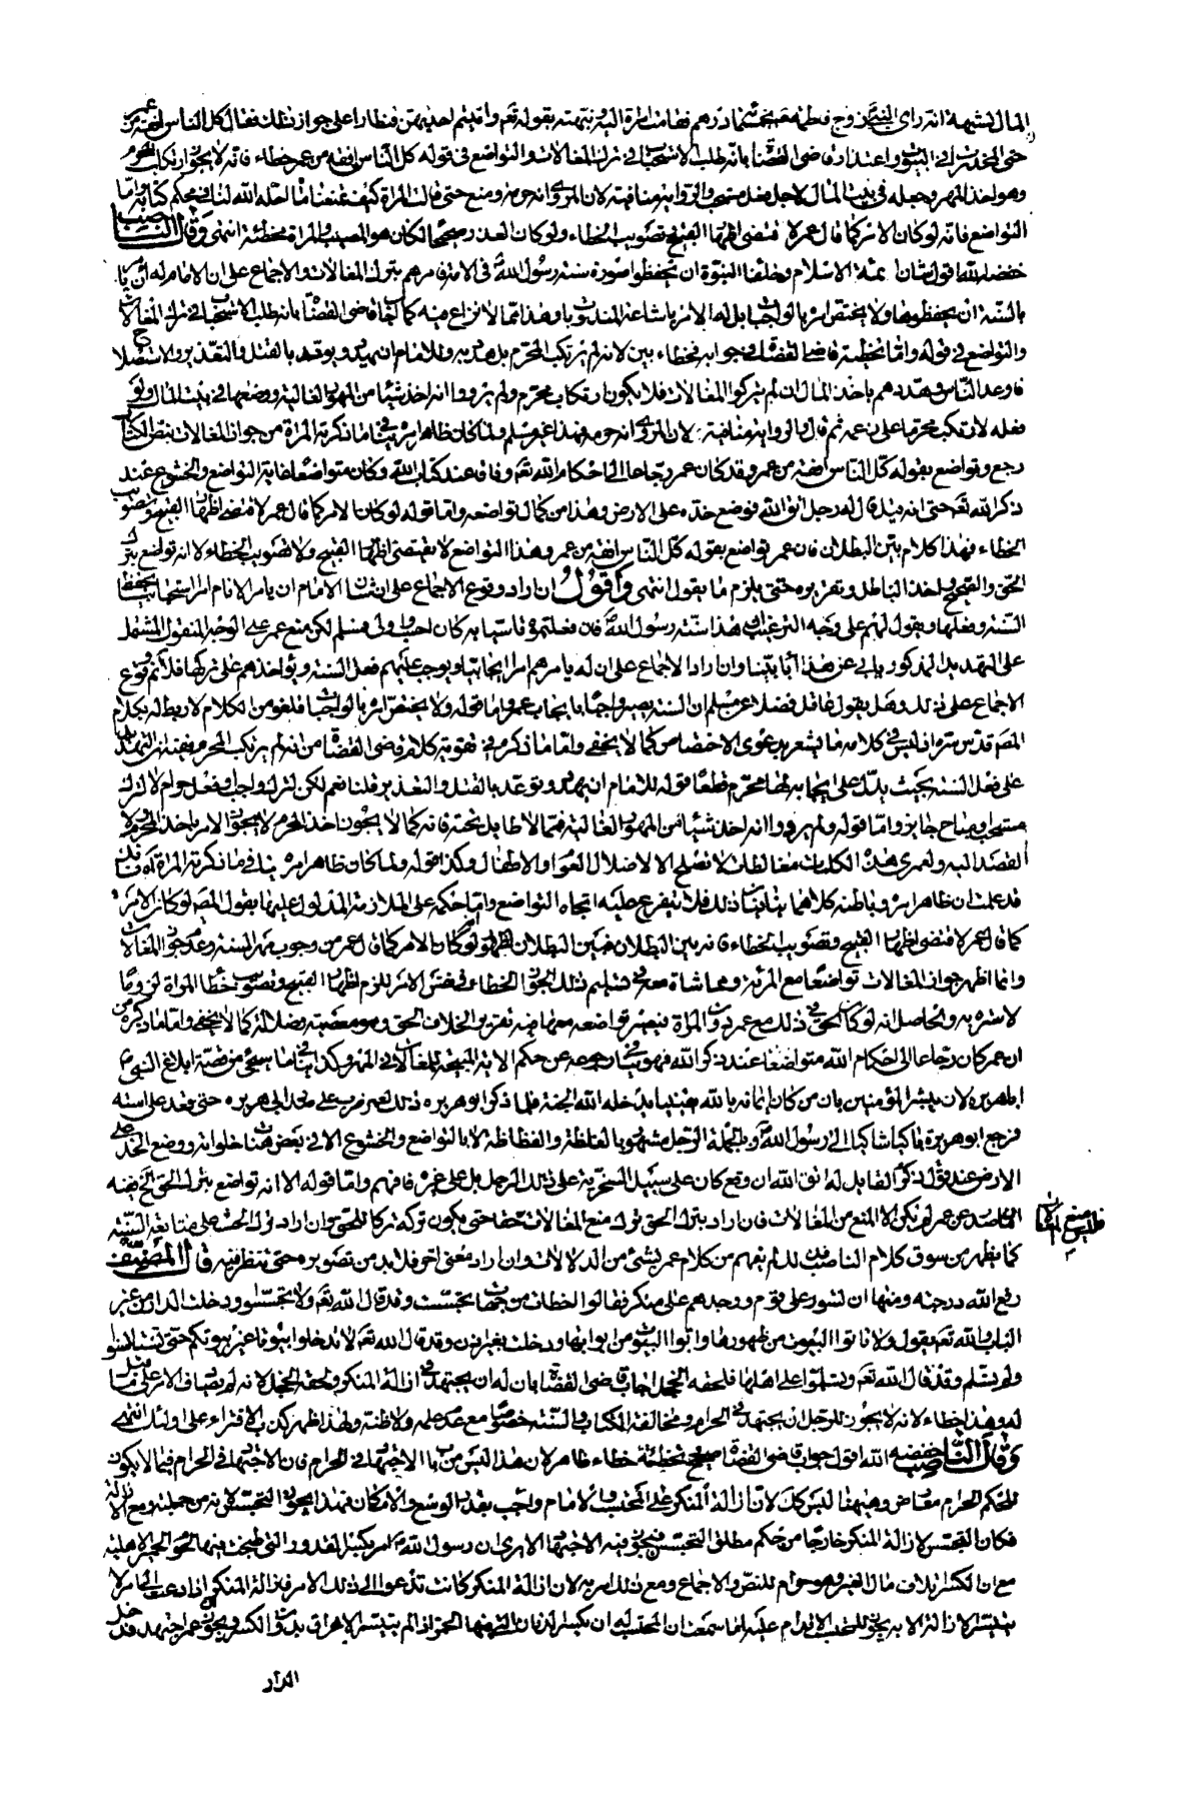 المال لشبهة انه رأى النبي زوج فاطمة بخمسمائة درهم فقامت امرأة اليه ونبهته بقوله تعالى وآتيتم احديهن قنطارا على جواز ذلك فقال كل الناس افقه من عمر
حتى المخدرات في البيوت واعتذار قاضي القضاة بأنه طلب الاستحباب في ترك المغالات والتواضع في قوله كل الناس افقه من عمر خطاء فانه لا يجوز ارتكاب المحرم
وهو اخذ المهر وجعله في بيت المال لاجل فعل مستحب والرواية منافية لان المروي انه حرمه ومنع حتى قالت المرأة كيف تمنعنا ما احله الله لنا في محكم كتابه واما
التواضع فانه لو كان الامر كما قال عمر لاقتضى اظهار القبيح وتصويب الخطاء ولو كان العذر صحيحا لكان هو المصيب والمرأة مخطئة انتهى وقال الناصب
خفضه الله اقول شان ائمة الاسلام وخلفاء النبوة ان يحفظوا صورة سنة رسول الله في الامة فامرهم بترك المغالات والاجماع على ان الامام له ان يأمر
بالسنة ان يحفظوها ولا يختص امره بالواجب بل له الامر باشاعة المندوب وهذا مما لا نزاع فيه كما اجاب قاضي القضاة بانه طلب الاستحباب في ترك المغالات
والتواضع في قوله واما تخطئة قاضي القضاة في جوابه فخطاء بين لانه لم يرتكب المحرم بل هدد به وللامام ان يهدد ويوعد بالقتل والتعذير والاستصلاح
فاوعد الناس وهددهم باخذ المال ان لم يتركوا المغالات فلا يكون ارتكاب محرم ولم يرووا انه اخذ شيئا من المهور الغالية ووضعها في بيت المال ولو
فعله لارتكب محرما على زعمه ثم قال والرواية منافية لان المروي انه حرمه فهذا غير مسلم ولما كان ظاهر امره ينافي ما ذكرته المرأة من جواز المغالات بنص الكتاب
رجع وتواضع بقوله كل الناس افقه من عمر وقد كان عمر رجاعا الى احكام الله تعالى وقافا عند كتاب الله وكان متواضعا غاية التواضع والخشوع عند
ذكر الله تعالى حتى انه قيل قال له رجل اتق الله فوضع خده على الارض وهذا من كمال تواضعه واما قوله لو كان الامر كما قال عمر لاقتضى اظهار القبيح وتصويب
الخطاء فهذا كلام بين البطلان فان عمر تواضع بقوله كل الناس افقه من عمر وهذا التواضع لا يقتضي اظهار القبيح ولا تصويب الخطاء لانه تواضع بترك
الحق والقبيح واخذ الباطل وتقريره حتى يلزم ما يقول انتهى واقول ان اراد وقوع الاجماع على ان شان الامام ان يامر الانام امر استحباب بحفظ
السنة وفعلها ويقول لهم على وجه الترغيب ان هذا سنة رسول الله فان فعلتموه تاسيا به كان احب واولى فمسلم لكن منع عمر على الوجه المنقول المشتمل
على التهديد المذكور يابى عن هذا اباء بينا وان اراد الاجماع على ان له يامرهم امرا ايجابيا ويوجب عليهم فعل السنة ويؤاخذهم على تركها فلا نسلم وقوع
الاجماع على ذلك وهل يقول عاقل فضلا عن مسلم ان السنة يصير واجبا بايجاب عمر واما قوله ولا يختص امره بالواجب فلغو من الكلام لا ربط له بكلام
المصنف قدس سره اذ ليس في كلامه ما يشعر بدعوى الاختصاص كما لا يخفى واما ما ذكره في تقوية كلام قاضي القضاة من انه لم يرتكب المحرم ففيه ان التهديد
على فعل السنة بحيث يدل على ايجابه لها محرم قطعا قوله للامام ان يهدد ويوعد بالقتل والتعذير قلنا نعم لكن لترك واجب او فعل حرام لا لترك
مستحب او مباح جايز واما قوله ولم يرووا انه اخذ شيئا من المهور الغالية فمما لا طايل تحته فانه كما لا يجوز اخذ المحرم لا يجوز الامر باخذ المحرم ولا
القصد اليه ولعمري هذه الكلمات مغالطات لا تصلح الا لاضلال العوام والاطفال وكذا قوله ولما كان ظاهر امره ينافي ما ذكرته المرأة
قد علمت ان ظاهر امره وباطنه كلاهما ينافيان ذلك فلا يتفرع عليه اتجاه التواضع واما حكمه على الملازمة المدلول عليها بقول المصنف لو كان الامر
كما قال عمر لاقتضى اظهار القبيح وتصويب الخطاء فانه بين البطلان فبين البطلان لظهور انه لو كان الامر كما قال عمر من وجوب مهر السنة وعدم جواز المغالات
وانما اظهر جواز المغالات تواضعا مع المرأة ومماشاة معها في تسليم ذلك الجواز الخطاء في نفس الامر للزم اظهار القبيح وتصويب خطأ المرأة لزوما
لا سترة به والحاصل انه لو كان الحق في ذلك مع عمر دون المرأة فيصير تواضعه معها فيه تقريرا لخلاف الحق وهو معصية فضلا كما لا يخفى واما ما ذكره من
ان عمر كان رجاعا الى احكام الله متواضعا عند ذكر الله فهو ينافي رجوعه عن حكم الاية المبيحة للمغالات في المهر وكذا ينافي ما سيجئ من قصة ابلاغ النبي
ابا هريرة لان يبشر المؤمنين بان من كان ايمانه بالله يقينيا يدخله الله الجنة فلما ذكر ابو هريرة ذلك لعمر ضرب على صدر ابي هريرة حتى قعد على استه
فرجع ابو هريرة باكيا شاكيا الى رسول الله وبالجملة الرجل مشهور بالغلظة والفظاظة لا بالتواضع والخشوع الا في بعض هناته وخلواته ووضع الخد على
الارض عند قول ذكر القايل له اتق الله ان وقع كان على سبيل السخرية على ذلك الرجل بل على غيره فافهم واما قوله الا انه تواضع بترك الحق الخ ففيه
ان الصادر عن عمر لم يكن الا المنع من المغالات فان اراد بترك الحق ترك منع المغالات حقا حتى يكون تركه تركا للحق وان اراد ترك الحث على متابعة السنة
فليس منع المغالات
كما يظهر من سوق كلام الناصب فذلك لم يفهم من كلام عمر بشئ من الدلالات وان اراد معنى اخر فلا بد من تصويره حتى ننظر فيه قال المصنف
رفع الله درجته ومنها انه تسور على قوم ووجدهم على منكر فقالوا اخطأت من جهات تجسست وقد قال الله تعالى ولا تجسسوا ودخلت الدار من غير
الباب والله تعالى يقول ولا تاتوا البيوت من ظهورها واتوا البيوت من ابوابها ودخلت بغير اذن وقد قال الله تعالى لا تدخلوا بيوتا غير بيوتكم حتى تستانسوا
ولم تسلم وقد قال الله تعالى وتسلموا على اهلها فلحقه الخجل اجاب قاضي القضاة بان له ان يجتهد في ازالة المنكر ولحقه الخجل لانه لم يصادف الامر على ما قيل
له وهذا خطاء لانه لا يجوز للرجل ان يجتهد في الحرام ومخالفة الكتاب والسنة خصوصا مع عدم علمه ولا ظنه ولهذا ظهر كذب الافتراء على اولئك انتهى
وقال الناصب خفضه الله اقول جواب قاضي القضاة صحيح وتخطئته خطاء ظاهر لان هذا ليس من باب الاجتهاد في الحرام فان الاجتهاد في الحرام فيما لا يكون
للحكم الحرام معارض وههنا ليس كذلك لان ازالة المنكر على المحتسب والامام واجب بقدر الوسع والامكان فهذا يجوز التجسس لانه من جملته مع ازالة
فكان التجسس لازالة المنكر خارجا من حكم مطلق التجسس فيجوز فيه الاجتهاد الا يرى ان رسول الله امر بكسر القدور التي طبخت فيها لحوم الحمر الاهلية
مع ان الكسر اتلاف مال الغير وهو حرام للنص والاجماع ومع ذلك امر به لان ازالة المنكر كانت تدعوا الى ذلك الامر فازالة المنكر اذا دعت الى امر لا
يتيسر الازالة الا به يجوز للمحتسب الاقدام عليه اما سمعت ان المحتسب له ان يكسر الدنان التي فيها الخمر اذا لم يتيسر الاهراق بدون الكسر فيجوز عمر اجتهد فدخل
الدار